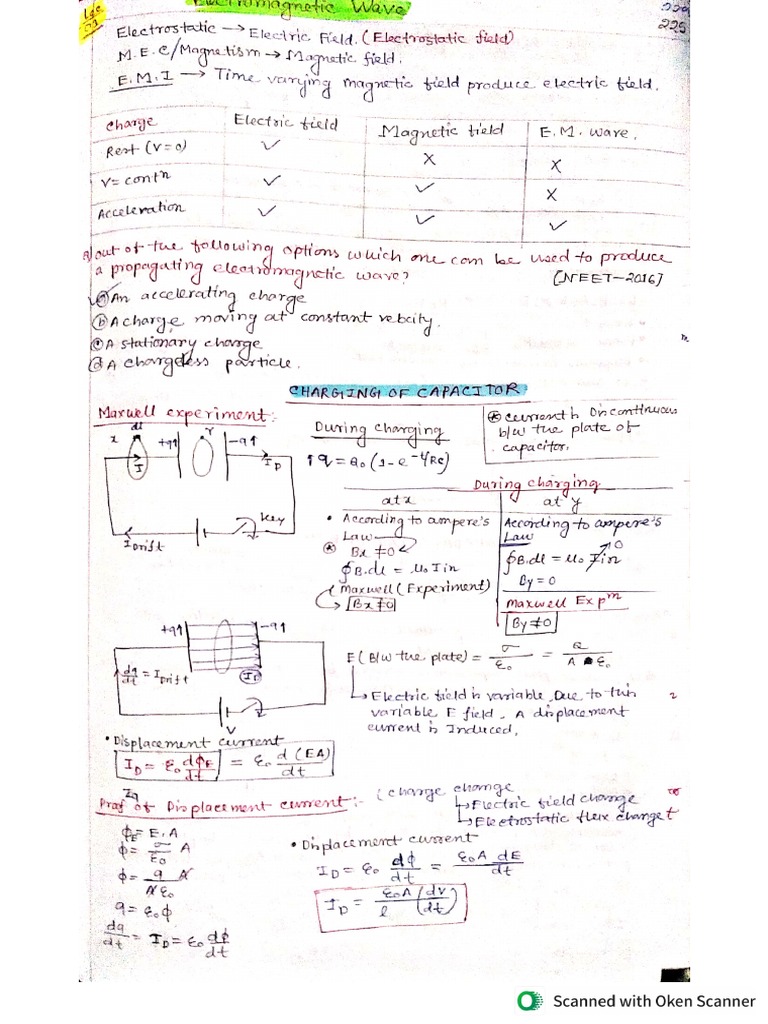 Lec
01
Electromagnetic Wave
225
Electrostatic → Electric Field. (Electrostatic field)
M.E.C/Magnetism → Magnetic field.
E.M.I → Time varying magnetic field produce electric field.
Charge Electric field Magnetic field E.M. wave.
Rest (V=0) ✓ X X
V= contⁿ ✓ ✓ X
Acceleration ✓ ✓ ✓
Q) out of the following options which one can be used to produce
a propagating electromagnetic wave? [NEET-2016]
ⓐ An accelerating charge
ⓑ A charge moving at constant velocity.
ⓒ A stationary charge
ⓓ A chargeless particle.
CHARGING OF CAPACITOR
Maxwell experiment:-
During charging
↑q = Q₀ (1-e^-t/RC)
⊛ current is Discontinuous
b/w the plate of
capacitor.
x dl +q↑ Y -q↑
I I_D
Key
I Drift
During charging
at x at y
• According to ampere's
Law
⊛ Bx ≠0
∮B.dl = μ₀ I in
Maxwell (Experiment)
Bx ≠0
According to ampere's
Law
∮B.dl = μ₀ I in 0
By = 0
Maxwell Exp^m
By ≠0
+q↑ -q↑
dq/dt = I Drift
I_D
V
E (B/w the plate) = σ/ε₀ = Q/A ε₀
Electric field is variable, Due to this
variable E field. A displacement
current is Induced.
• Displacement current
I_D = ε₀ dϕ_E/dt = ε₀ d(EA)/dt
Proof of Displacement current:-
charge change
Electric field change
Electrostatic flux change
ϕ_E = E.A
ϕ = σ/ε₀ A
ϕ = q/A ε₀ A
q = ε₀ϕ
dq/dt = I_D = ε₀ dϕ/dt
• Displacement current
I_D = ε₀ dϕ/dt = ε₀A dE/dt
I_D = ε₀A/l (dv/dt)
Scanned with Oken Scanner